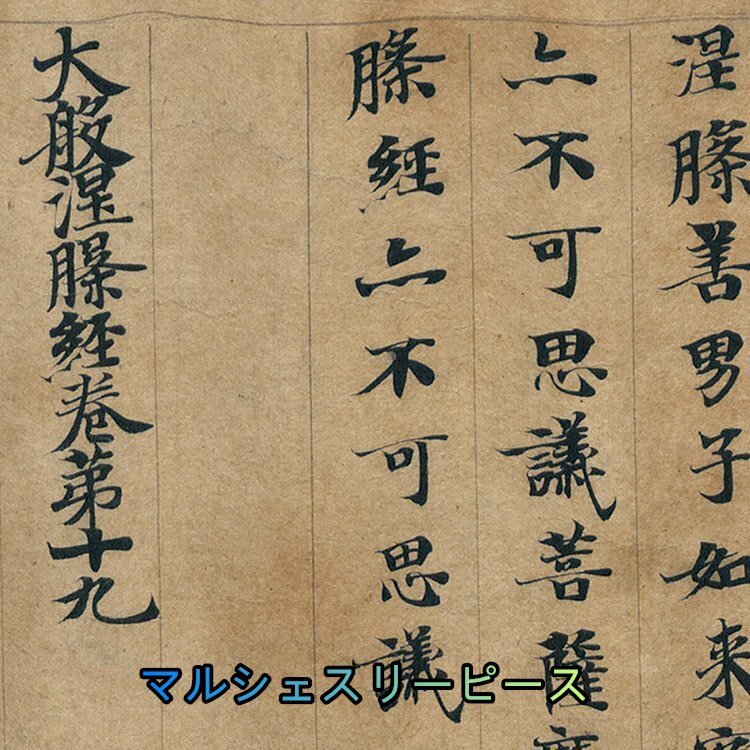 涅槃善男子如来
亦不可思議菩薩
槃經亦不可思議
大般涅槃經卷第十九
マルシェスリーピース